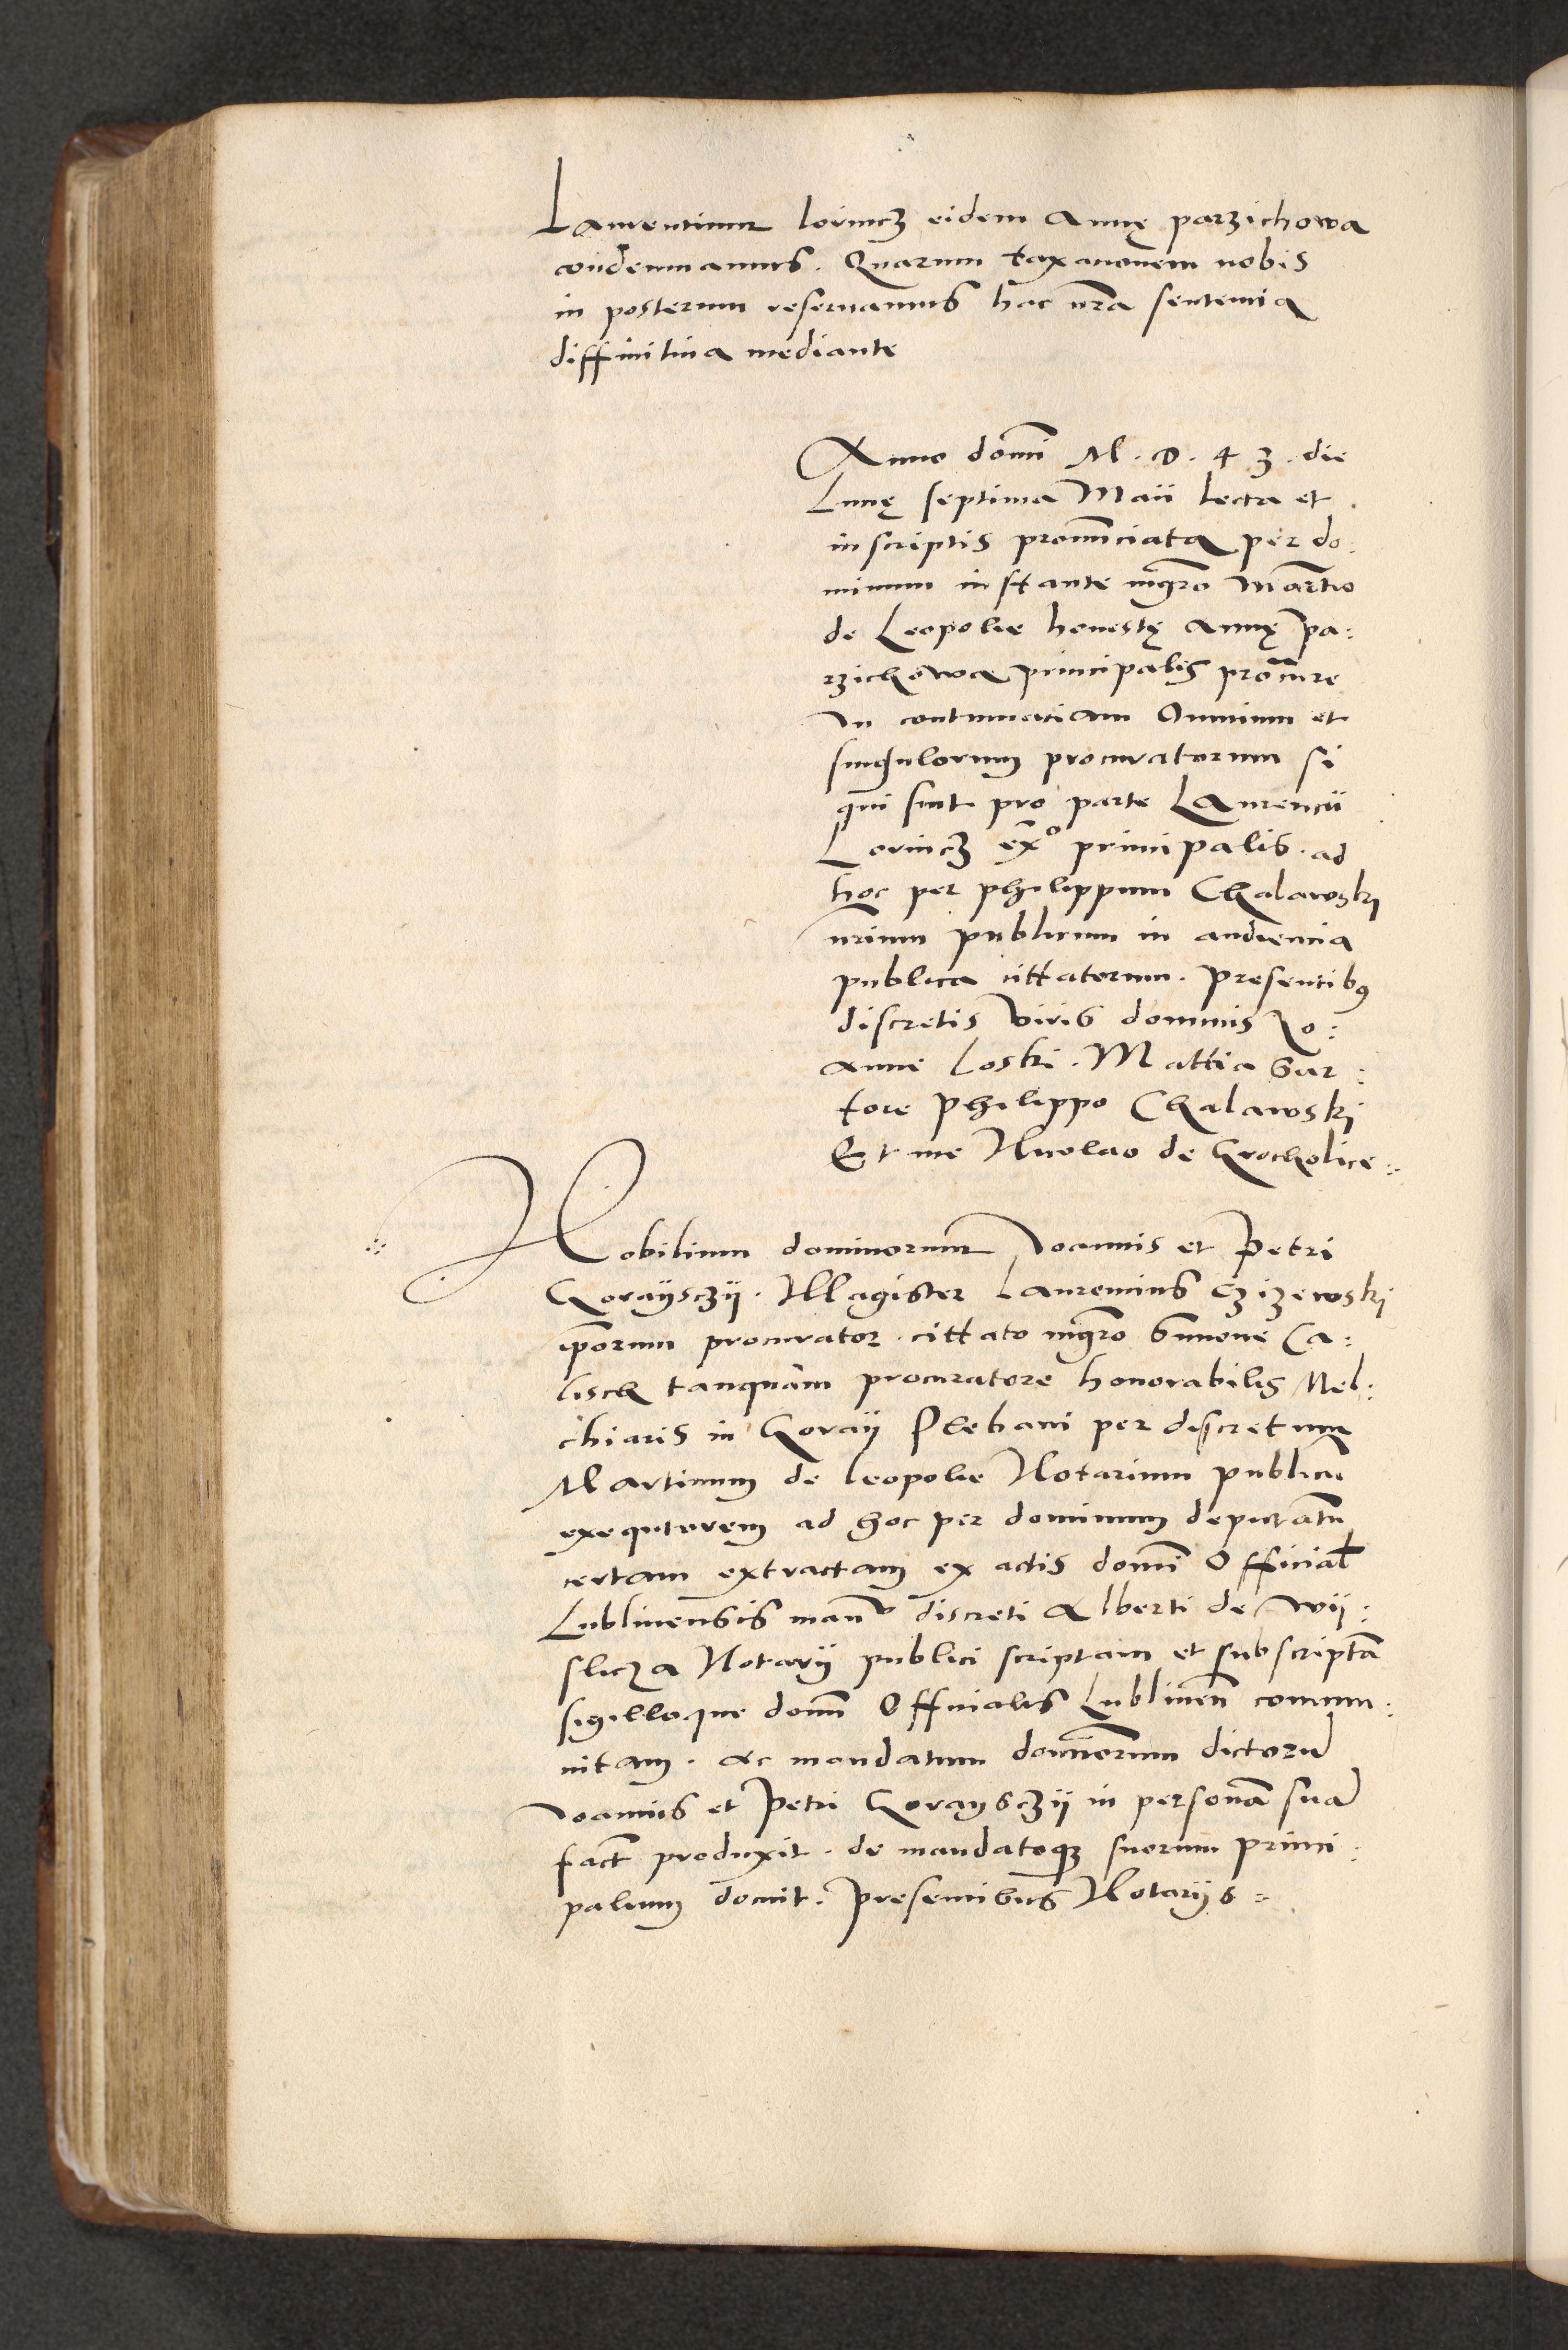 Laurentium lorincz eidem Annę parzichowa
condemnamus. Quarum taxationem nobis
in posterum reservamus hac nrã sententia
diffinitiva mediante
Anno domi M. D. 43. die
Lunę septima Maii lecta et
in scriptis pronunciata per do:
minum instante mgrõ Martio
de Leopolie honestę Annę pa:
rzichowa principalis procure
In contumaciam Omnium et
singulorum procuratorum si
qui sint pro parte Laurencii
Lorincz exº principalis. ad
hoc per philippum Chalawski
nrium publicum in audiencia
publica cittatorum. presentibus
discretis viris dominis Io:
anne Loski. Mattia Sar:
tore Philippo Chalawski
Et me Nicolao de Grocholice:
Nobilium dominorum Joannis et Petri
Goraysczii. Magister Laurencius Czizewski
ipsorum procurator. cittato mgrõ Simone Ca:
lisch tanquam procuratore honorabilis Mel:
chiaris in Goraii Plebani per discretum
Martinum de leopolie Notarium publicũ
exequtorem ad hoc per dominum deputatũ
certam extractam ex actis domi Official
Lublinensis manu discreti Alberti de Wij:
slicza Notarij publici scriptam et subscriptã
sigilloque domi Officialis Lublineñ commu:
nitam. ac mandatum dominorum dictorũ
Joannis et Petri Gorayszczii in personã suã
fact produxit. de mandatoqz suorum princi:
palium docuit. presentibus Notarijs